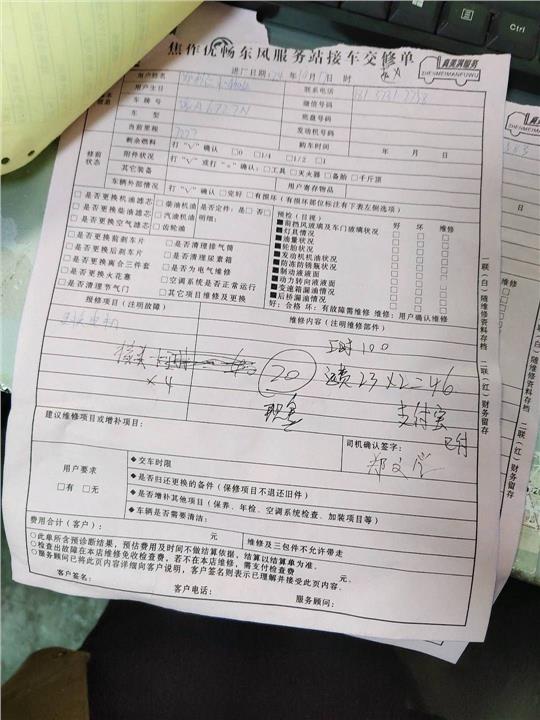 焦作优畅东风服务站接车交修单
真美满服务
ZHENMEIMANFUWU
用户姓名 进厂日期: 年 月 日 时
用户生日 联系电话
车牌号 微信号码
车型 底盘号码
当前里程 发动机号码
剩余燃料 打"√"确认 □0 □1/4 □1/2 □1 购车时间 年 月 日
修前状态
附件状况 打"√"或打"="确认:□工具 □灭火器 □备胎 □千斤顶
其它装备 用户寄存物品
车辆外部情况 打"√"确认 □完好 □有损坏(有损坏部位标注有下表左侧选项)
□是否更换机油滤芯 □柴油机油 是否定件:是□否□
□是否更换柴油滤芯 □汽油机油 明细:
□是否更换空气滤芯 □齿轮油
□是否更换前刹车片 □是否清理排气筒
□是否更换后刹车片 □是否清理尿素箱
□是否更换离合三件套 □是否为电气维修
□是否更换火花塞 □空调系统是否正常运行
□是否清理节气门 □其它项目维修及更换
预检(目视) 好 坏 维修
■前挡风玻璃及车门玻璃状况 □ □ □
■灯具情况 □ □ □
■油量状况 □ □ □
■轮胎状况 □ □ □
■发动机机油状况 □ □ □
■防冻防锈瓶状况 □ □ □
■制动液液面 □ □ □
■动力转向液液面 □ □ □
■变速箱漏油情况 □ □ □
■后桥漏油情况 □ □ □
好:合格 坏:有故障需维修 维修:用户确认维修
报修项目(注明故障) 维修内容(注明维修部件)
工时100
20 运费23×2=46
×4
现金 支付宝
已付
建议维修项目或增补项目:
司机确认签字:
郑文学
用户要求
□有 □无
◆交车时限
◆是否归还更换的备件(保修项目不退还旧件)
◆是否增补其他项目(保养、年检、空调系统检查、加装项目等)
◆车辆是否需要清洁:
费用合计(客户): 元. 维修及三包件不允许带走
○此单所含预诊断结果,预估费用及时间不做结算依据,结算以结算单为准。
○检查出故障在本店维修免收检查费,若不在本店维修,需支付检查费 元.
○服务顾问已将此页内容详细向客户说明,客户签名则表示已理解并接受此页内容.
客户签名: 客户电话: 服务顾问:
一联(白)随维修资料存档 二联(红)财务留存
ZHENMEIMANFUWU
一联(白)随维修资料存档 二联(红)财务留存